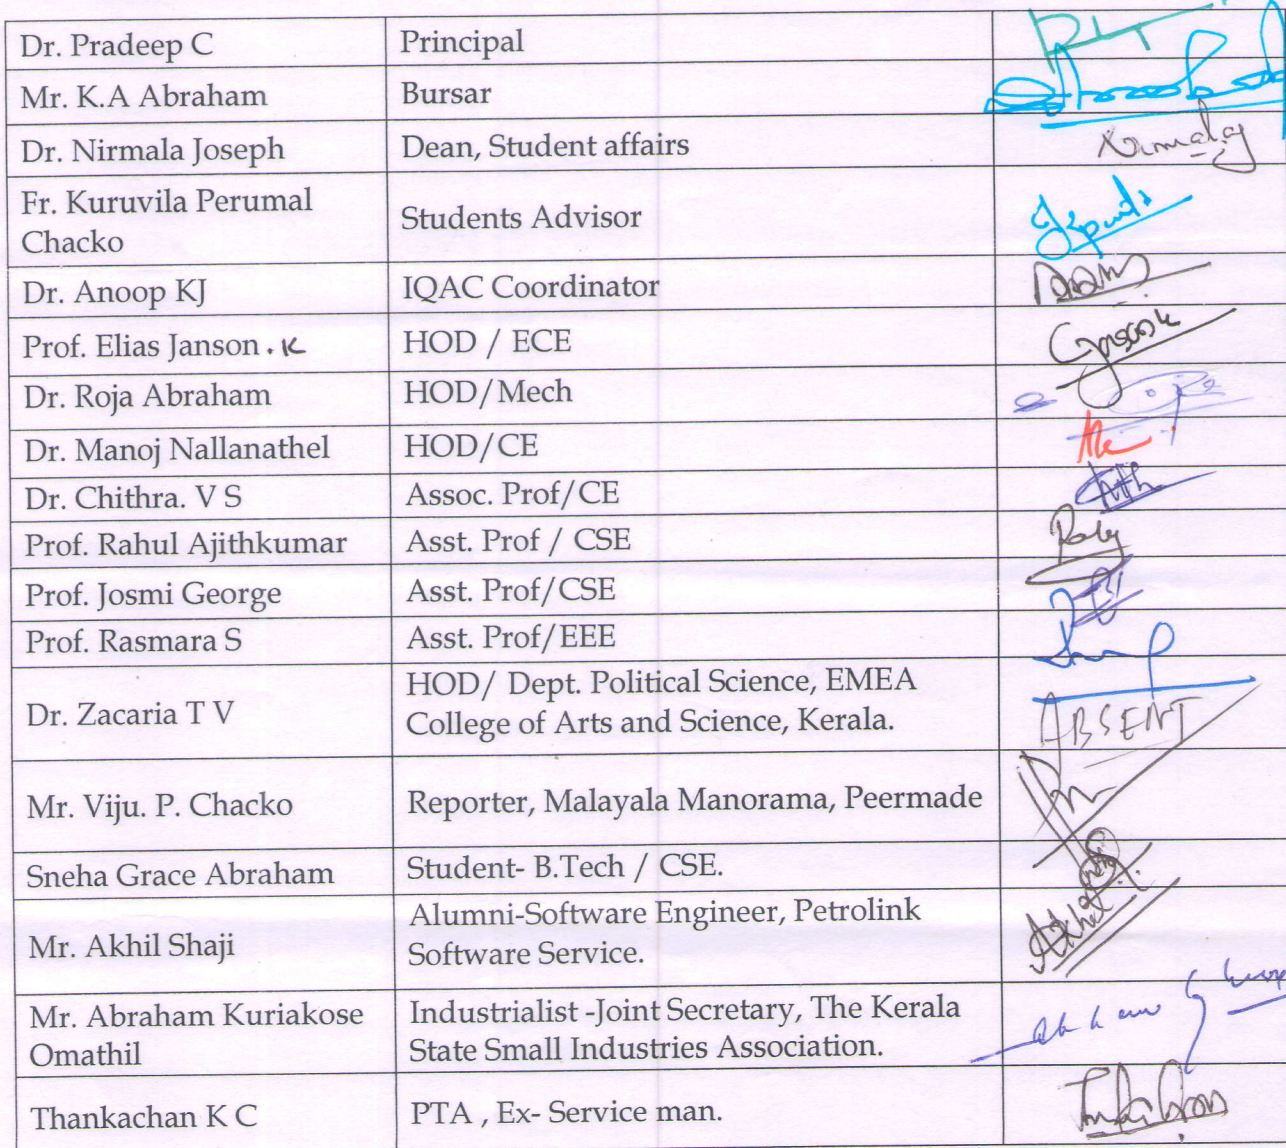 Dr. Pradeep C Principal
Mr. K.A Abraham Bursar
Dr. Nirmala Joseph Dean, Student affairs
Fr. Kuruvila Perumal
Chacko
Students Advisor
Dr. Anoop KJ IQAC Coordinator
Prof. Elias Janson . K HOD / ECE
Dr. Roja Abraham HOD/Mech
Dr. Manoj Nallanathel HOD/CE
Dr. Chithra. V S Assoc. Prof/CE
Prof. Rahul Ajithkumar Asst. Prof / CSE
Prof. Josmi George Asst. Prof/CSE
Prof. Rasmara S Asst. Prof/EEE
Dr. Zacaria T V
HOD/ Dept. Political Science, EMEA
College of Arts and Science, Kerala.
ABSENT
Mr. Viju. P. Chacko Reporter, Malayala Manorama, Peermade
Sneha Grace Abraham Student- B.Tech / CSE.
Mr. Akhil Shaji
Alumni-Software Engineer, Petrolink
Software Service.
Mr. Abraham Kuriakose
Omathil
Industrialist -Joint Secretary, The Kerala
State Small Industries Association.
Thankachan K C PTA , Ex- Service man.